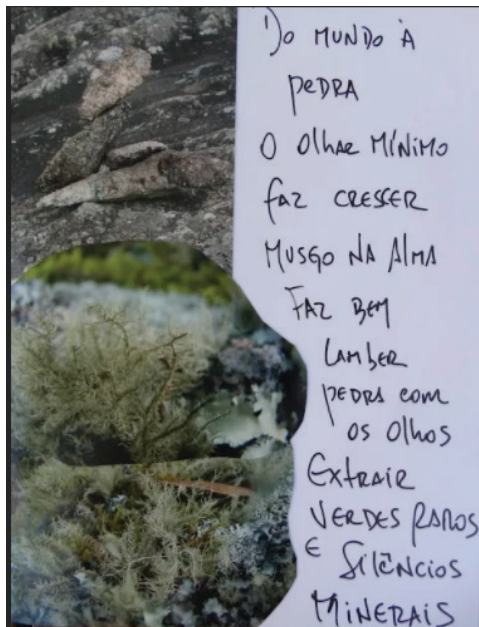 Do MUNDO À
PEDRA
O OlhAR MÍNIMO
FAZ CRESCER
MUSGO NA AlMA
FAZ BEM
LAMBER
PEDRA com
os olhos
Extrair
VERDES RAROS
E SilÊNCIOS
MINERAIS